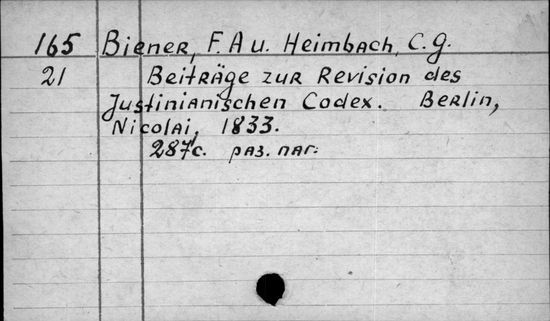 165 Biener, F. A u. Heimbach, C. G.
21 Beiträge zur Revision des
Justinianischen Codex. Berlin,
Nicolai, 1833.
287c. раз. паг.